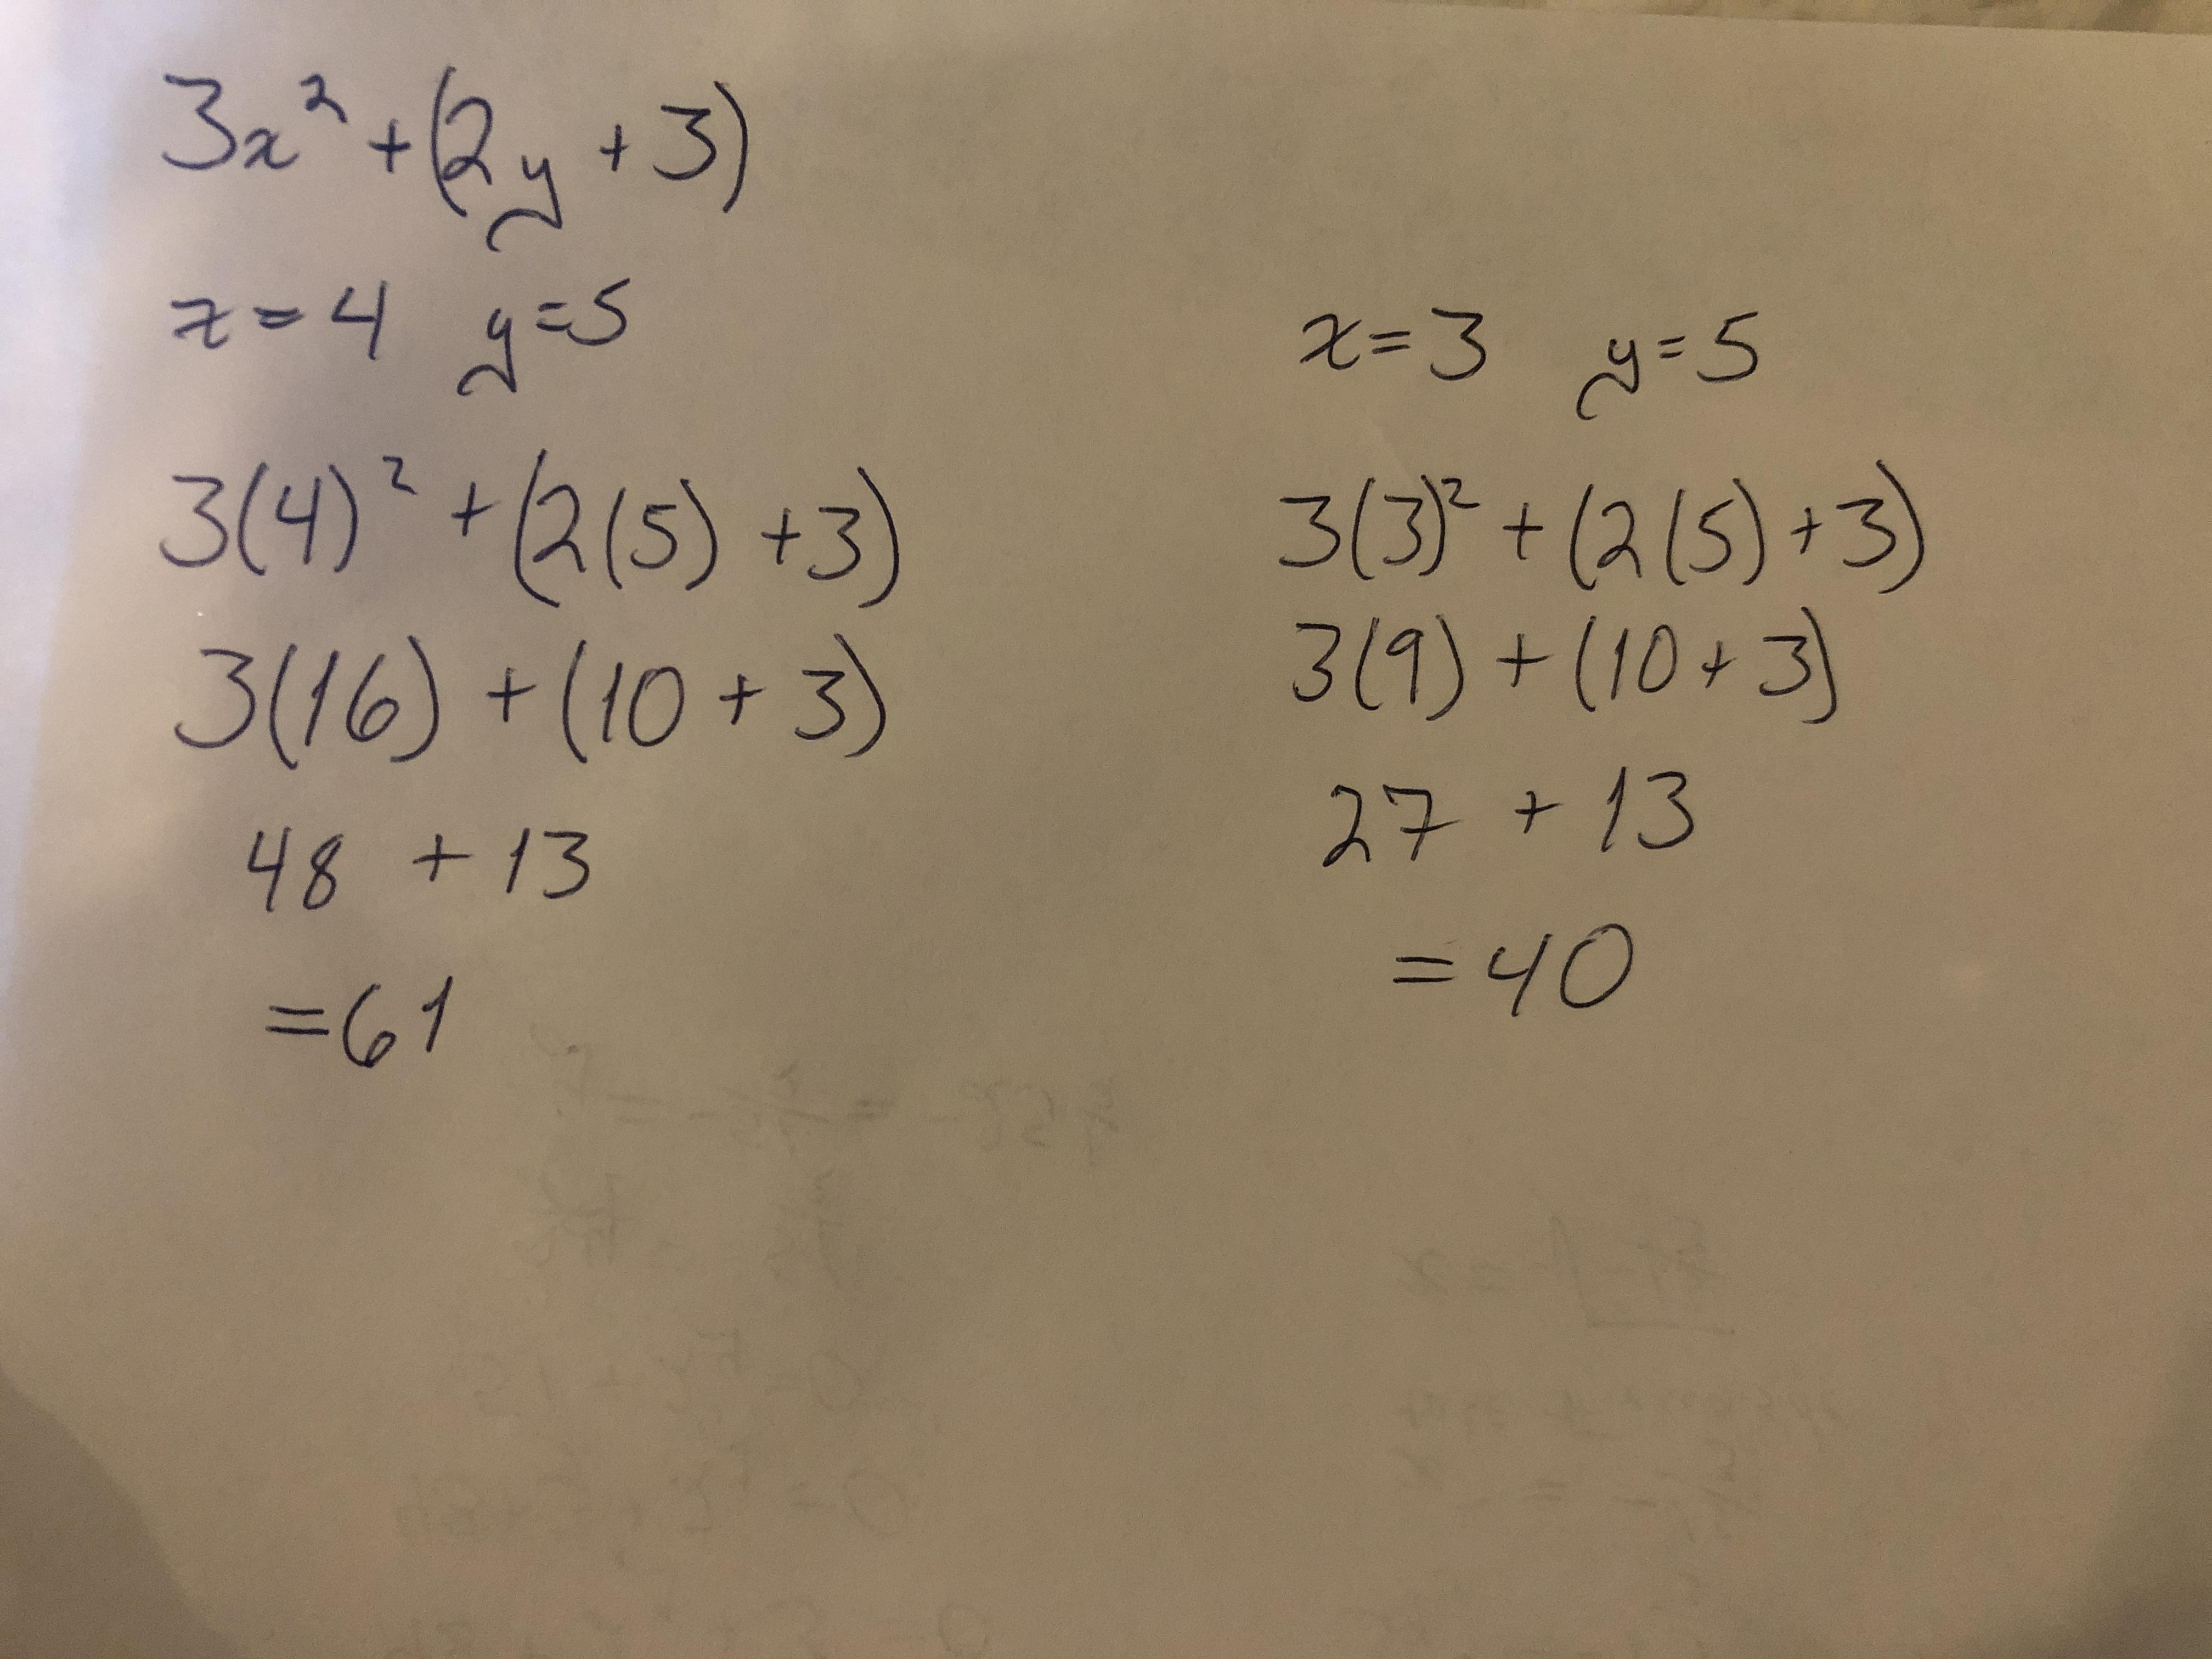 3x² + (2y + 3)
x = 4 y = 5
3(4)² + (2(5) + 3)
3(16) + (10 + 3)
48 + 13
= 61
x = 3 y = 5
3(3)² + (2(5) + 3)
3(9) + (10 + 3)
27 + 13
= 40